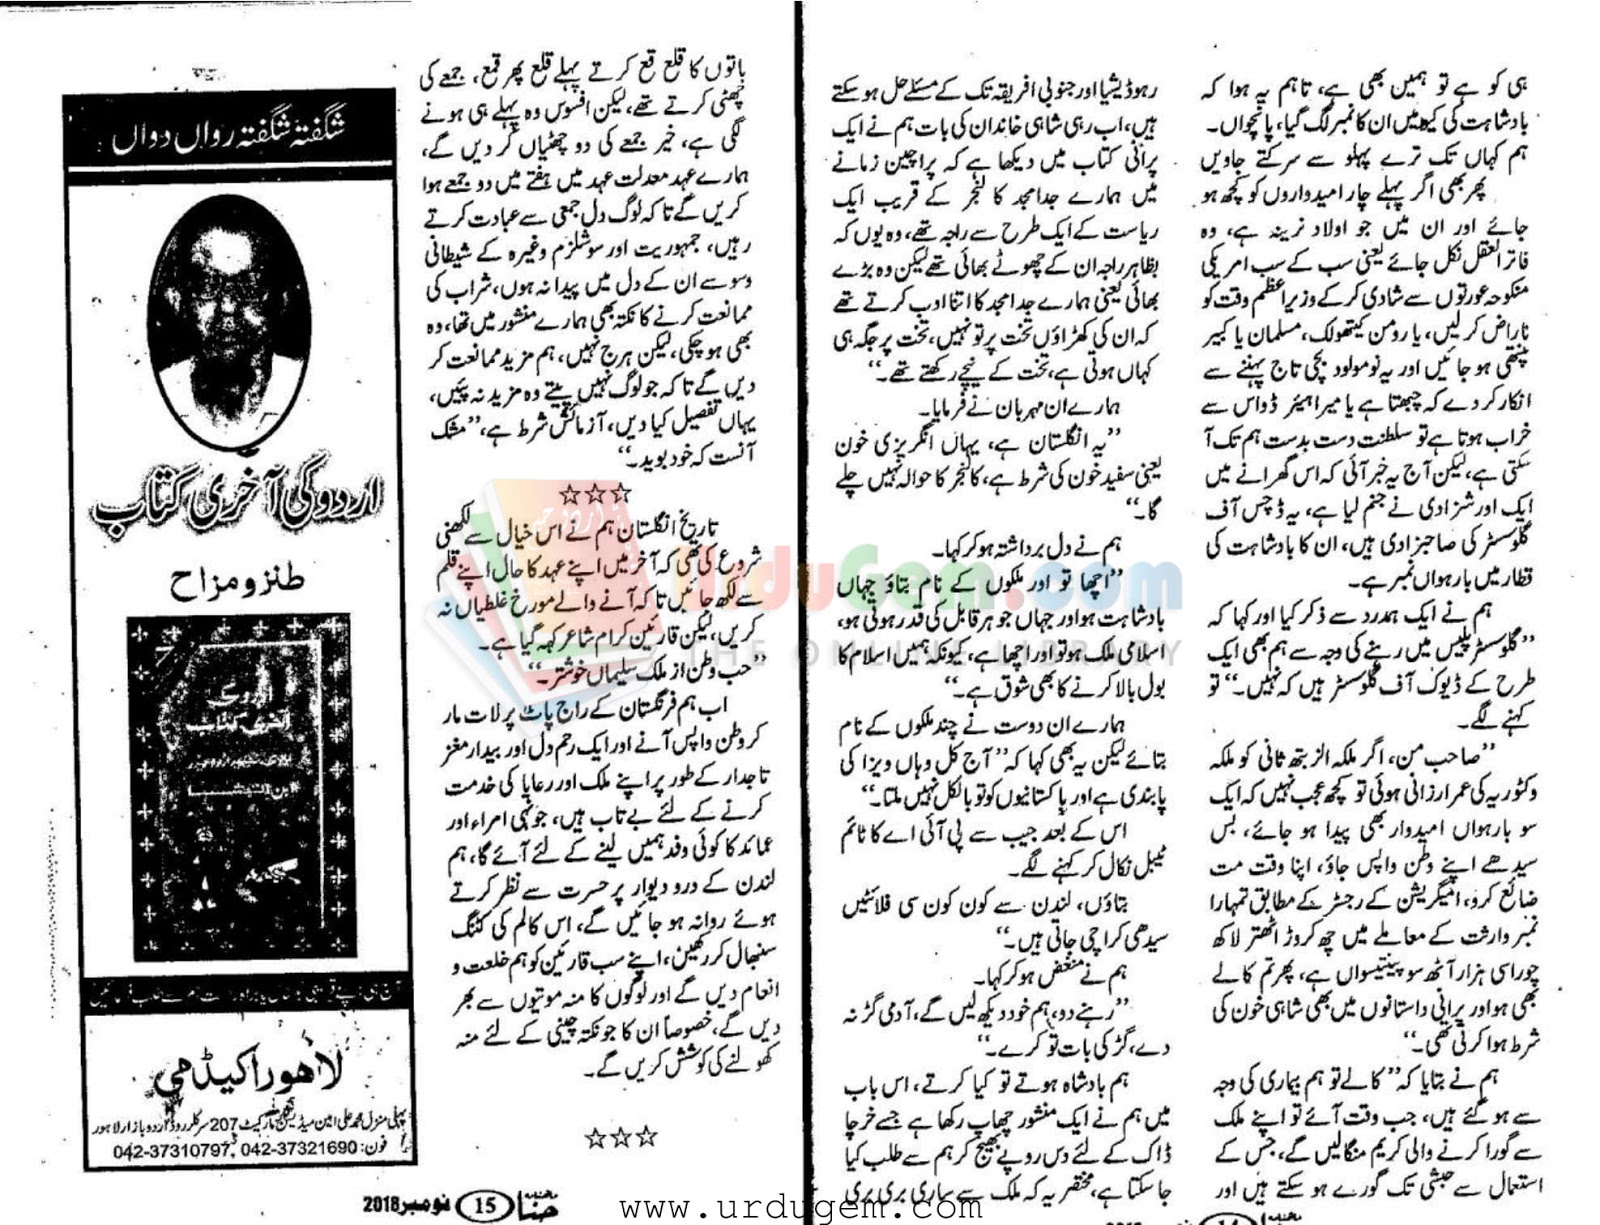 ہی کو ہے تو ہمیں بھی ہے، تاہم یہ ہوا کہ
بادشاہت کی کیو میں ان کا نمبر لگ گیا، پانچواں۔
ہم کہاں تک ترے پہلو سے سرکتے جاویں
پھر بھی اگر پہلے چار امیدواروں کو کچھ ہو
جائے اور ان میں جو اولاد نرینہ ہے، وہ
فاتر العقل نکل جائے یعنی سب کے سب امریکی
منکوحہ عورتوں سے شادی کر کے وزیراعظم وقت کو
ناراض کر لیں، یا رومن کیتھولک، مسلمان یا کبیر
پنتھی ہو جائیں اور یہ نومولود بچی تاج پہننے سے
انکار کر دے کہ چبھتا ہے یا میرا ہیئر ڈو اس سے
خراب ہوتا ہے تو سلطنت دست بدست ہم تک آ
سکتی ہے، لیکن آج یہ خبر آئی کہ اس گھرانے میں
ایک اور شہزادی نے جنم لیا ہے، یہ ڈچس آف
گلوسٹر کی صاحبزادی ہیں، ان کا بادشاہت کی
قطار میں بارہواں نمبر ہے۔
ہم نے ایک ہمدرد سے ذکر کیا اور کہا کہ
”گلوسٹر پلیس میں رہنے کی وجہ سے ہم بھی ایک
طرح کے ڈیوک آف گلوسٹر ہیں کہ نہیں۔“ تو
کہنے لگے۔
”صاحب من، اگر ملکہ الزبتھ ثانی کو ملکہ
وکٹوریہ کی عمر ارزانی ہوئی تو کچھ عجب نہیں کہ ایک
سو بارہواں امیدوار بھی پیدا ہو جائے، بس
سیدھے اپنے وطن واپس جاؤ، اپنا وقت مت
ضائع کرو، امیگریشن کے رجسٹر کے مطابق تمہارا
نمبر وارثت کے معاملے میں چھ کروڑ اٹھتر لاکھ
چوراسی ہزار آٹھ سو پینتیسواں ہے، پھر تم کالے
بھی ہو اور پرانی داستانوں میں بھی شاہی خون کی
شرط ہوا کرتی تھی۔“
ہم نے بتایا کہ ”کالے تو ہم بیماری کی وجہ
سے ہو گئے ہیں، جب وقت آئے تو اپنے ملک
سے گورا کرنے والی کریم منگا لیں گے، جس کے
استعمال سے حبشی تک گورے ہو سکتے ہیں اور
رہوڈیشیا اور جنوبی افریقہ تک کے مسئلے حل ہو سکتے
ہیں، اب رہی شاہی خاندان کی بات ہم نے ایک
پرانی کتاب میں دیکھا ہے کہ پراچین زمانے
میں ہمارے جد امجد کا لنجر کے قریب ایک
ریاست کے ایک طرح سے راجہ تھے، وہ یوں کہ
بظاہر راجہ ان کے چھوٹے بھائی تھے لیکن وہ بڑے
بھائی یعنی ہمارے جد امجد کا اتنا ادب کرتے تھے
کہ ان کی کھڑاؤں تخت پر تو نہیں، تخت پر جگہ ہی
کہاں ہوتی ہے، تخت کے نیچے رکھتے تھے۔“
ہمارے ان مہربان نے فرمایا۔
”یہ انگلستان ہے، یہاں انگریزی خون
یعنی سفید خون کی شرط ہے، کالنجر کا حوالہ نہیں چلے
گا۔“
ہم نے دل برداشتہ ہو کر کہا۔
”اچھا تو اور ملکوں کے نام بتاؤ جہاں
بادشاہت ہو اور جہاں جو ہر قابل کی قدر ہوتی ہو،
اسلامی ملک ہو تو اور اچھا ہے، کیونکہ ہمیں اسلام کا
بول بالا کرنے کا بھی شوق ہے۔“
ہمارے ان دوست نے چند ملکوں کے نام
بتائے لیکن یہ بھی کہا کہ ”آج کل وہاں ویزا کی
پابندی ہے اور پاکستانیوں کو تو بالکل نہیں ملتا۔“
اس کے بعد جیب سے پی آئی اے کا ٹائم
ٹیبل نکال کر کہنے لگے۔
بتاؤں، لندن سے کون کون سی فلائٹیں
سیدھی کراچی جاتی ہیں۔“
ہم نے منغض ہو کر کہا۔
”رہنے دو، ہم خود دیکھ لیں گے، آدمی گڑ نہ
دے، گڑ کی بات تو کرے۔“
ہم بادشاہ ہوتے تو کیا کرتے، اس باب
میں ہم نے ایک منشور چھاپ رکھا ہے جسے خرچا
ڈاک کے لئے دس روپے بھیج کر ہم سے طلب کیا
جا سکتا ہے، مختصر یہ کہ ملک سے ساری بری بری
باتوں کا قلع قمع کرتے پہلے قلع پھر قمع، جمعے کی
چھٹی کرتے تھے، لیکن افسوس وہ پہلے ہی ہونے
لگی ہے، خیر جمعے کی دو چھٹیاں کر دیں گے،
ہمارے عہد معدلت عہد میں ہفتے میں دو جمعے ہوا
کریں گے تاکہ لوگ دل جمعی سے عبادت کرتے
رہیں، جمہوریت اور سوشلزم وغیرہ کے شیطانی
وسوسے ان کے دل میں پیدا نہ ہوں، شراب کی
ممانعت کرنے کا نکتہ بھی ہمارے منشور میں تھا، وہ
بھی ہو چکی، لیکن ہرج نہیں، ہم مزید ممانعت کر
دیں گے تاکہ جو لوگ نہیں پیتے وہ مزید نہ پئیں،
یہاں تفصیل کیا دیں، آزمائش شرط ہے، ”مشک
آنست کہ خود بوید۔“
☆☆☆
تاریخ انگلستان ہم نے اس خیال سے لکھنی
شروع کی تھی کہ آخر میں اپنے عہد کا حال اپنے قلم
سے لکھ جائیں تاکہ آنے والے مورخ غلطیاں نہ
کریں، لیکن قارئین کرام شاعر کہہ گیا ہے۔
”حب وطن از ملک سلیماں خوشتر۔“
اب ہم فرنگستان کے راج پاٹ پر لات مار
کر وطن واپس آنے اور ایک رحم دل اور بیدار مغز
تاجدار کے طور پر اپنے ملک اور رعایا کی خدمت
کرنے کے لئے بے تاب ہیں، جونہی امراء اور
عمائد کا کوئی وفد ہمیں لینے کے لئے آئے گا، ہم
لندن کے در و دیوار پر حسرت سے نظر کرتے
ہوئے روانہ ہو جائیں گے، اس کالم کی کٹنگ
سنبھال کر رکھیئں، اپنے سب قارئین کو ہم خلعت و
انعام دیں گے اور لوگوں کا منہ موتیوں سے بھر
دیں گے، خصوصاً ان کا جو نکتہ چینی کے لئے منہ
کھولنے کی کوشش کریں گے۔
☆☆☆
شگفتہ شگفتہ رواں دواں
اردو کی آخری کتاب
طنز و مزاح
اردو کی
آخری کتاب
ابن انشا
لاہور اکیڈمی
پہلی منزل محمد علی امین میڈیسن مارکیٹ 207 سرکلر روڈ اردو بازار لاہور
فون: 042-37310797, 042-37321690
حنا 15 نومبر 2018
UrduGem.com
THE ONLINE LIBRARY
www.urdugem.com